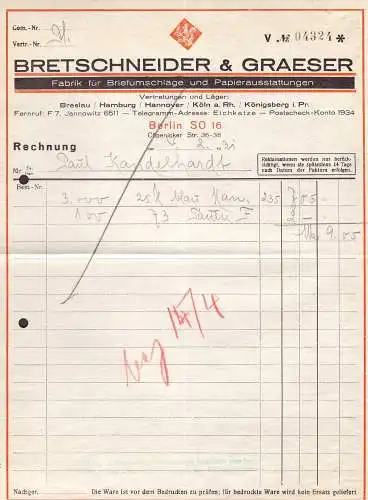 Com.-Nr.
Vertr.-Nr.
V № 04324 *
BRETSCHNEIDER & GRAESER
Fabrik für Briefumschläge und Papierausstattungen
Vertretungen und Läger:
Breslau / Hamburg / Hannover / Köln a. Rh. / Königsberg i. Pr.
Fernruf: F 7, Jannowitz 6511 — Telegramm-Adresse: Eichkatze — Postscheck-Konto 1934
Berlin SO 16
Cöpenicker Str. 36-38
Rechnung
Reklamationen werden nur berück-
sichtigt, wenn sie spätestens 14 Tage
nach Datum der Faktura erfolgen.
Paul
Best.-Nr.
3.000 blau 235 7 05
100 73 2 -
Mk 9.05
14/4
Nachger. Die Ware ist vor dem Bedrucken zu prüfen; für bedruckte Ware wird kein Ersatz geliefert